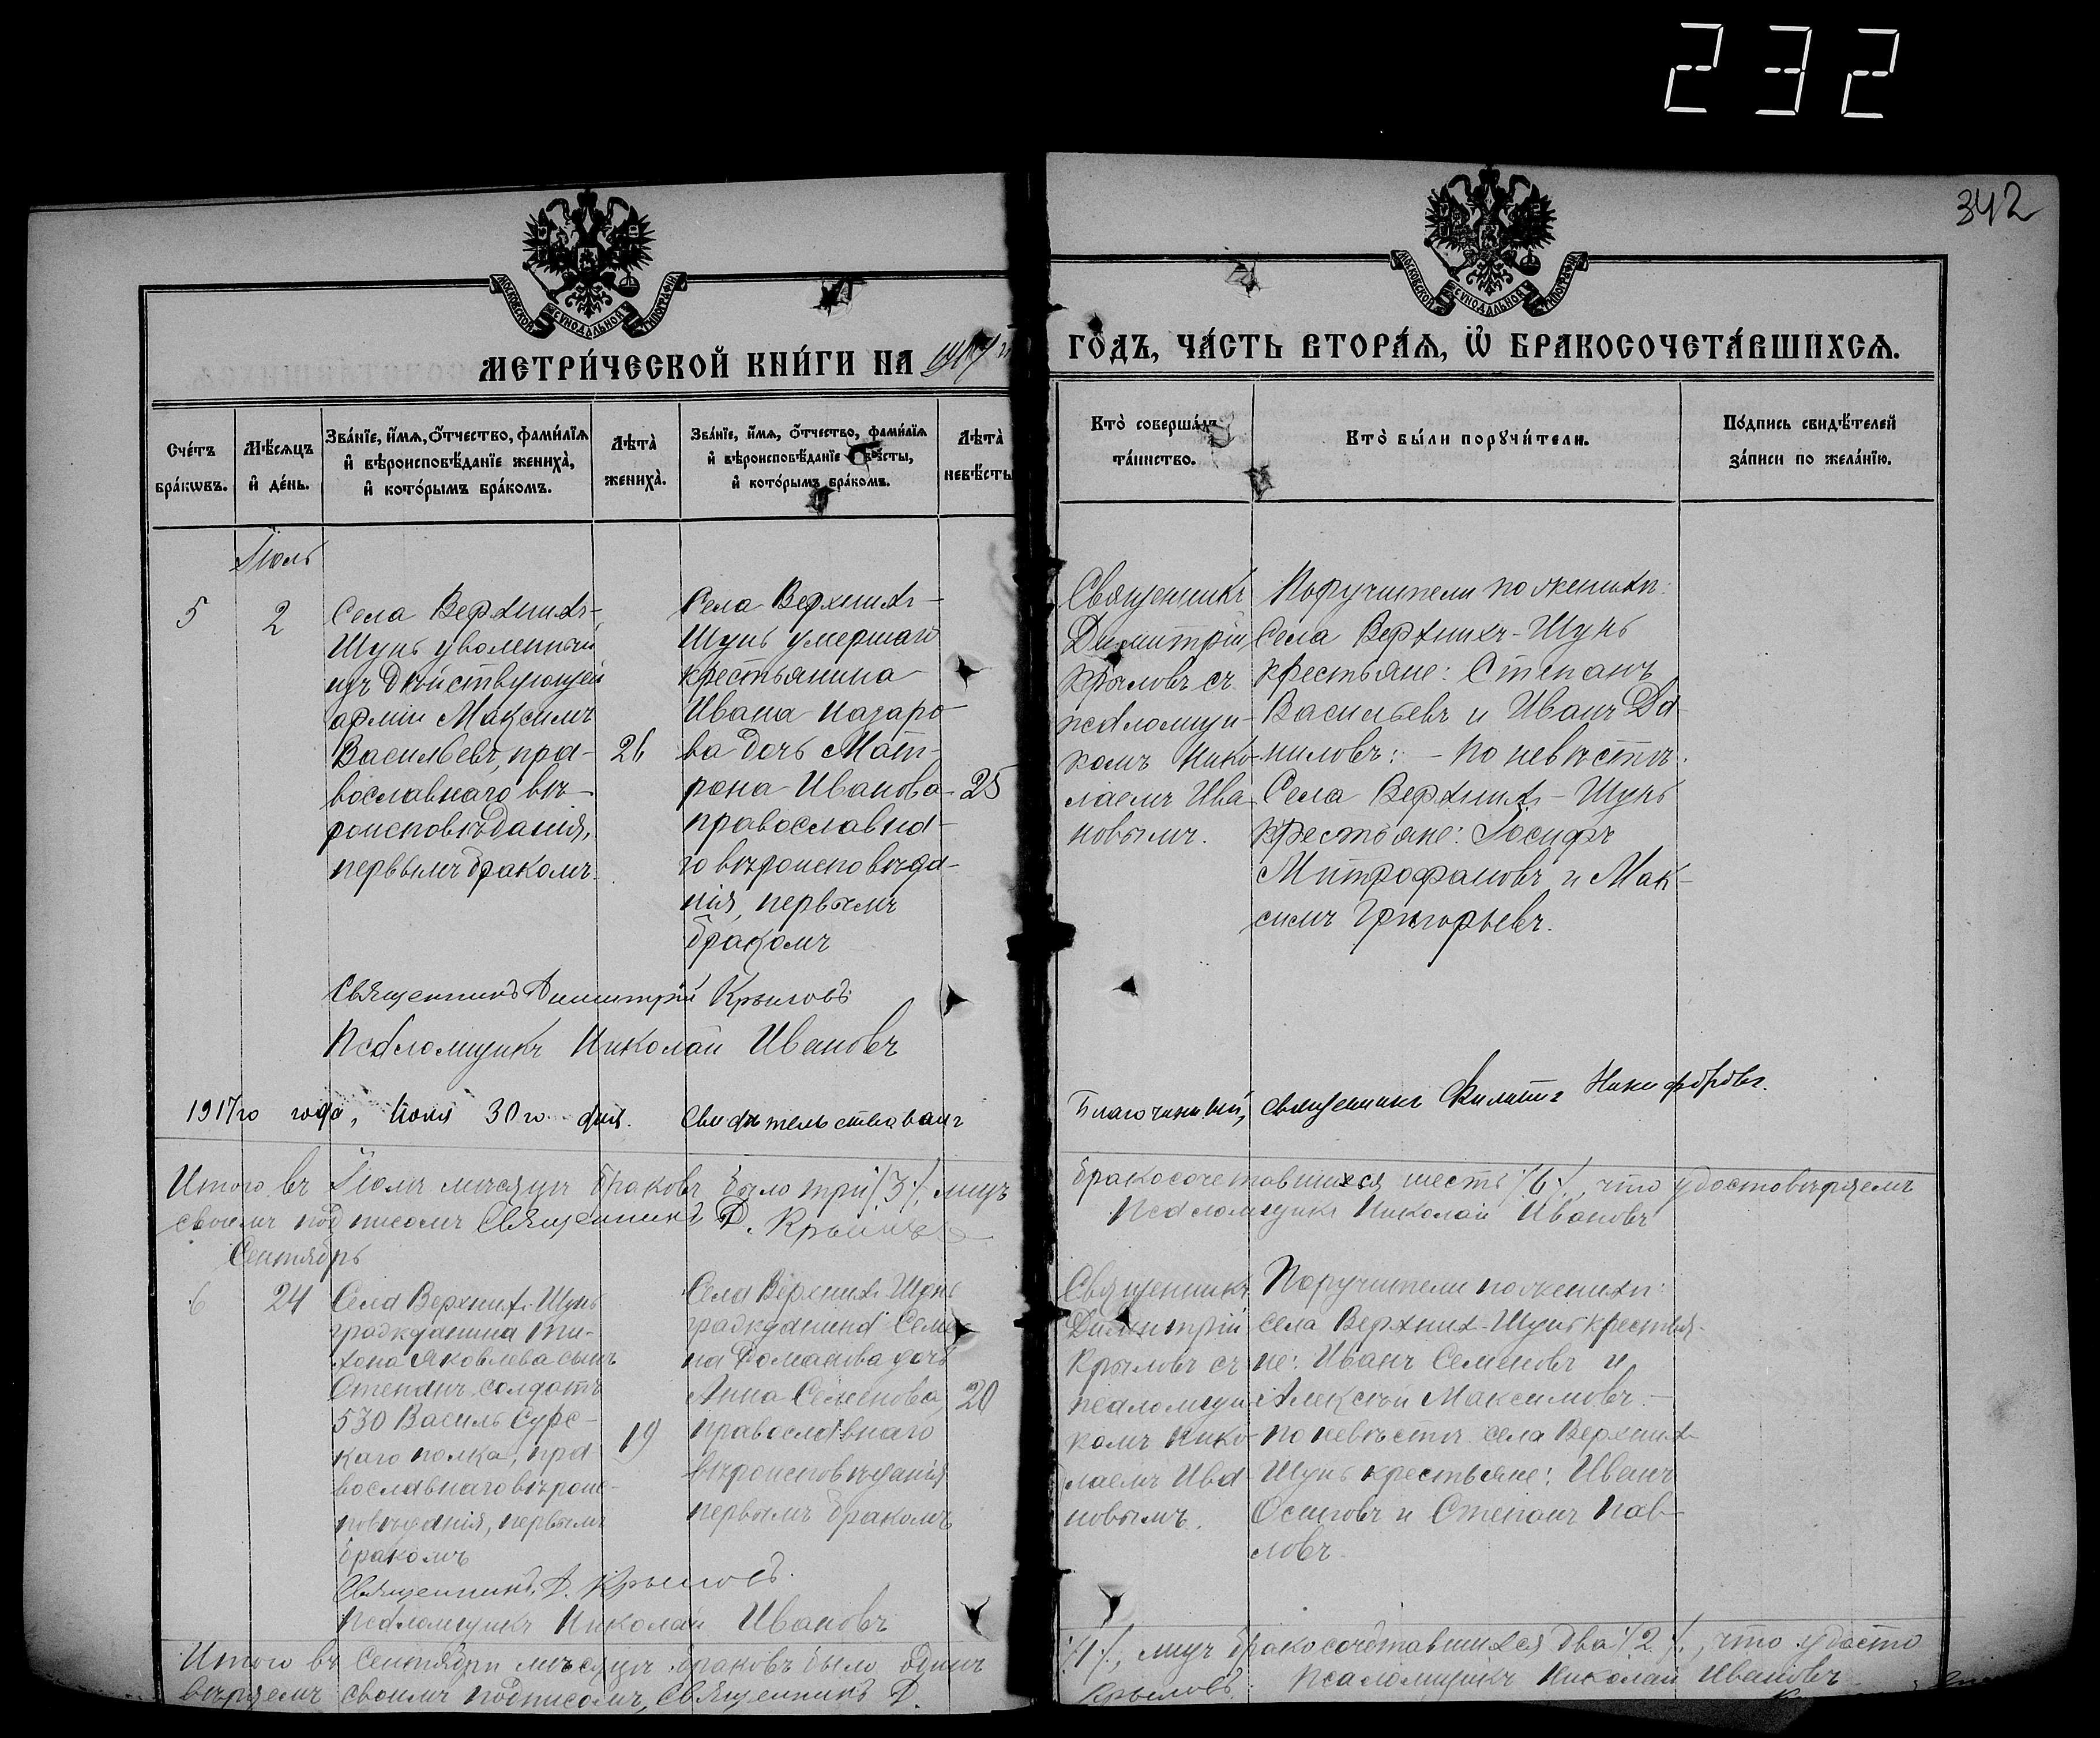 232
342
МОСКОВСКОЙ СѴНОДАЛЬНОЙ ТИПОГРАФІИ
МОСКОВСКОЙ СѴНОДАЛЬНОЙ ТИПОГРАФІИ
МЕТРИ́ЧЕСКОЙ КНИ́ГИ НА 1917
ГО́ДЪ, ЧА́СТЬ ВТОРА́Ѧ, Ѡ҆ БРАКОСОЧЕТА́ВШИХСѦ.
Сче́тъ бра́кѡвъ.
Мѣ́сѧцъ и҆ де́нь.
Зва́нїе, и҆́мѧ, ѻ҆́тчество, фами́лїѧ
и҆ вѣроисповѣ́данїе жениха̀,
и҆ кото́рымъ бра́комъ.
Лѣта̀ жениха̀.
Зва́нїе, и҆́мѧ, ѻ҆́тчество, фами́лїѧ
и҆ вѣроисповѣ́данїе невѣ́сты,
и҆ кото́рымъ бра́комъ.
Лѣта̀ невѣ́сты
Кто̀ соверша́лъ
та́инство.
Кто̀ бы́ли порꙋчи́тели.
По́дпись свидѣ́телей
за́писи по жела́нїю.
Іюль
5
2
Села Верхнихъ-
Шунь уволенный
изъ дѣйствующей
арміи Максимъ
Васильевъ, пра-
вославнаго вѣ-
роисповѣданія,
первымъ бракомъ.
26
Села Верхнихъ-
Шунь умершаго
крестьянина
Ивана Назаро-
ва дочь Мат-
рона Иванова
православна-
го вѣроисповѣда-
нія, первымъ
бракомъ
25
Священникъ
Димитрій
Крыловъ съ
псаломщи-
комъ Нико-
лаемъ Ива-
новымъ.
Поручители по женихѣ:
Села Верхнихъ-Шунь
крестьяне: Степанъ
Васильевъ и Иванъ Да-
ниловъ: - по невѣстѣ:
Села Верхнихъ-Шунь
крестьяне: Іосифъ
Митрофановъ и Мак-
симъ Григорьевъ.
Священникъ Димитрій Крыловъ
Псаломщикъ Николай Ивановъ
1917го года, Іюля 30го дня. Свидѣтельствовалъ
Благочинный, священникъ Филиппъ Никифоровъ.
Итого въ Іюлѣ мѣсяцѣ браковъ было три /3/, лицъ
бракосочетавшихся шесть /6/, что удостовѣряемъ
своимъ подписомъ Священникъ Д. Крыловъ
Псаломщикъ Николай Ивановъ
Сентябрь
6
24
Села Верхнихъ-Шунь
гражданина Ти-
хона Яковлева сынъ
Степанъ солдатъ
530 Василь Сурс-
каго полка, пра
вославнаго вѣроис-
повѣданія, первымъ
бракомъ
19
Села Верхнихъ-Шунь
гражданина Семе-
на Романова дочь
Анна Семенова,
православнаго
вѣроисповѣданія
первымъ бракомъ
20
Священникъ
Димитрій
Крыловъ съ
псаломщи
комъ Нико-
лаемъ Ива
новымъ.
Поручители по женихѣ:
села Верхнихъ-Шунь крестья-
не: Иванъ Семеновъ и
Алексѣй Максимовъ. -
по невѣстѣ села Верхнихъ
Шунь крестьяне: Иванъ
Осиповъ и Степанъ Пав-
ловъ.
Священникъ Д. Крыловъ.
Псаломщикъ Николай Ивановъ
Итого въ Сентябрѣ мѣсяцѣ браковъ было одинъ
/1/, лицъ бракосочетавшихся два /2/, что удосто
вѣряемъ своимъ подписомъ, Священникъ Д.
Крыловъ. Псаломщикъ Николай Ивановъ